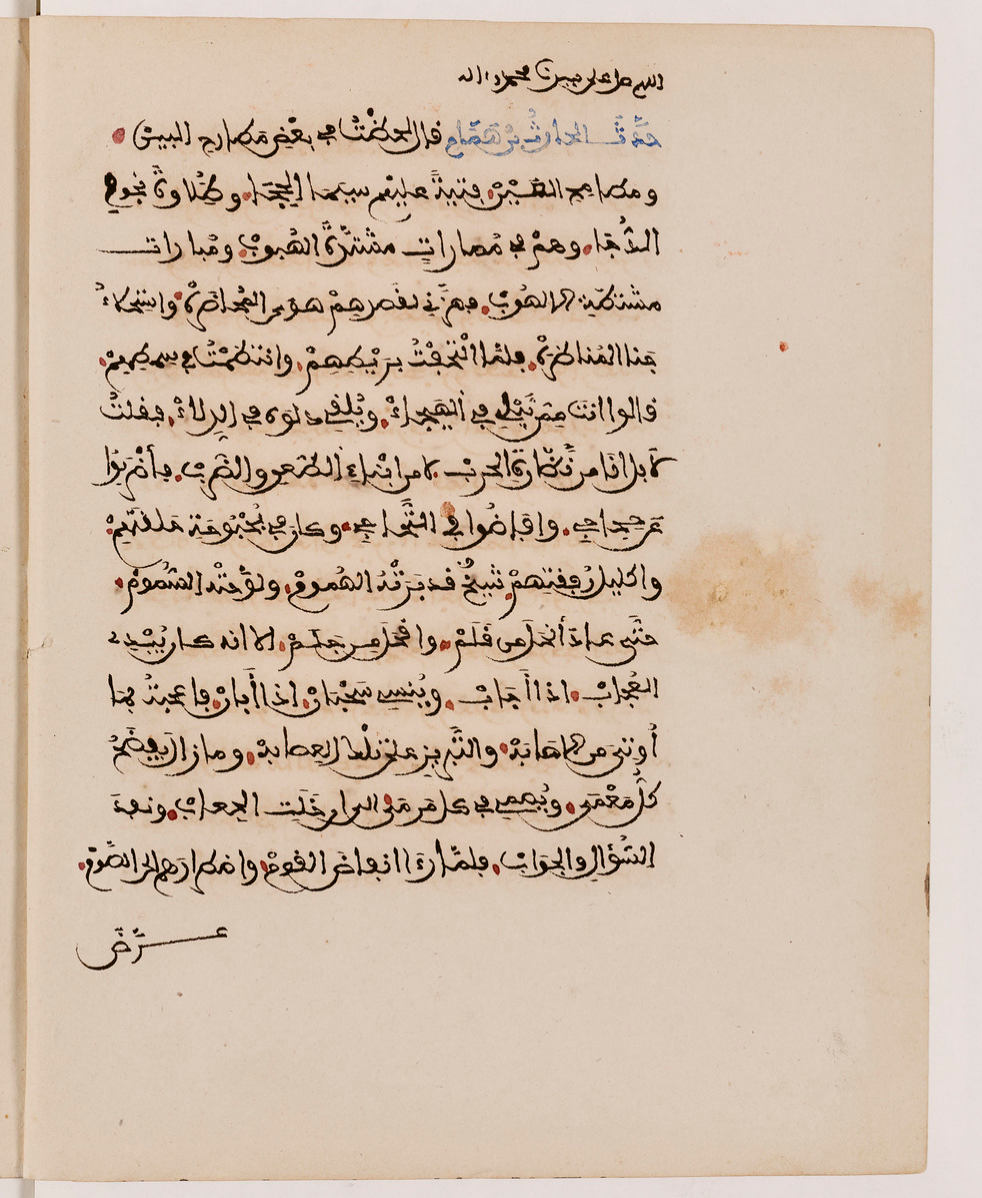 اللهم صل على نبينا محمد واله
حدثنا الحارث بن همام قال لحظتُ في بعض مطارح البين
ومطامح العين فتيةً عليهم سيما الحجا وطُلاوة نجوم
الدُّجا وهمْ في مُمارات مشتدَّة الهُبوبْ ومُبارات
مشتطّة الالهُوبْ فهزَّني لقصدهمْ هوى المحاضرة واستحلاءُ
جنا المُناظرة فلما التحقتُ برهطهمْ وانتظمتُ في سمطهمْ
قالوا انت ممَّن يُبْلي في الهيجاءْ ويُلقي دلوه في الدلاءْ فقلتُ
لا بل انا من نُظّارة الحربْ لا من ابناء الطعن والضربْ فأضربوا
عن حجاجي وافاضُوا في التَّحاجي وكان في بُحْبُوحة حلقتهمْ
واكليل رُفقتهمْ شيخٌ قد برتْهُ الهُمومْ ولوَّحتْه السَّمُومْ
حتَّى عاد أنحل من قلمْ واقحل من جلمْ الا انه كان يُبْدي
العُجابْ اذا أجابْ ويُنسي سَحْبانْ اذا أبانْ فاعجبتُ بما
أُوتي من الاصابهْ والتَّبريز على تلْك العصابهْ وما زال يفضحُ
كلَّ مُعْمَّى ويُصمي في كل مرمى الى ان خَلَت الجعابْ ونفِدَ
السُّؤال والجوابْ فلمّا رءا انفاض القومْ واضطرارهم الى الصَّومْ
عرَّض